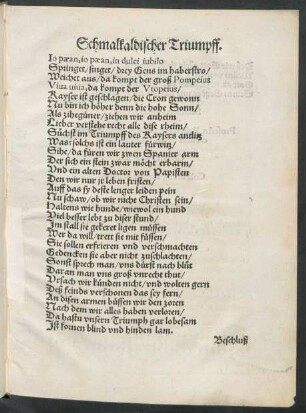 Schmalkaldischer Triumpff.
Io pæan, io pæan, in dulci iubilo
Springet/ singet/ drey Gens im haberstro/
Weichet aus/ da kompt der groß Pompeius
Viua uiua, da kompt der Vtopeius/
Kayser ist geschlagen/ die Cron gewonn
Nu bin ich höher denn die hohe Sonn/
Als zihegüner/ ziehen wir anheim
Lieber verstehe recht alle dise rheim/
Sichst im Triumpff des Kaysers
Was: solchs ist ein lauter fürwitz/
Sihe/ da füren wir zwen Spanier arm
Der sich ein stein zwar möcht erbarm/
Vnd ein alten Doctor von Papisten
Den wir nur jr leben fristen/
Auff das sy deste lenger leiden pein
Nu schaw/ ob wir nicht Christen sein/
Haltens wie hunde/ wiewol ein hund
Viel besser lebt zu diser stund/
Im stall sie gekeret ligen müssen
Wer da will/ trett sie mit füssen/
Sie sollen erfrieren vnd verschmachten
Gedencken sie aber nicht zuschlachten/
Sonst sprech man/ vns dürst nach blůt
Daran man vns groß vnrecht thut/
Vrsach wir künden nicht/ vnd wolten gern
Deß feinds verschonen das sey fern/
An disen armen büssen wir den zoren
Nach dem wir alles haben verloren/
Da hastu vnsern Triumph gar lobesam
Ist komen blind vnd hinden lam.
Beschluß